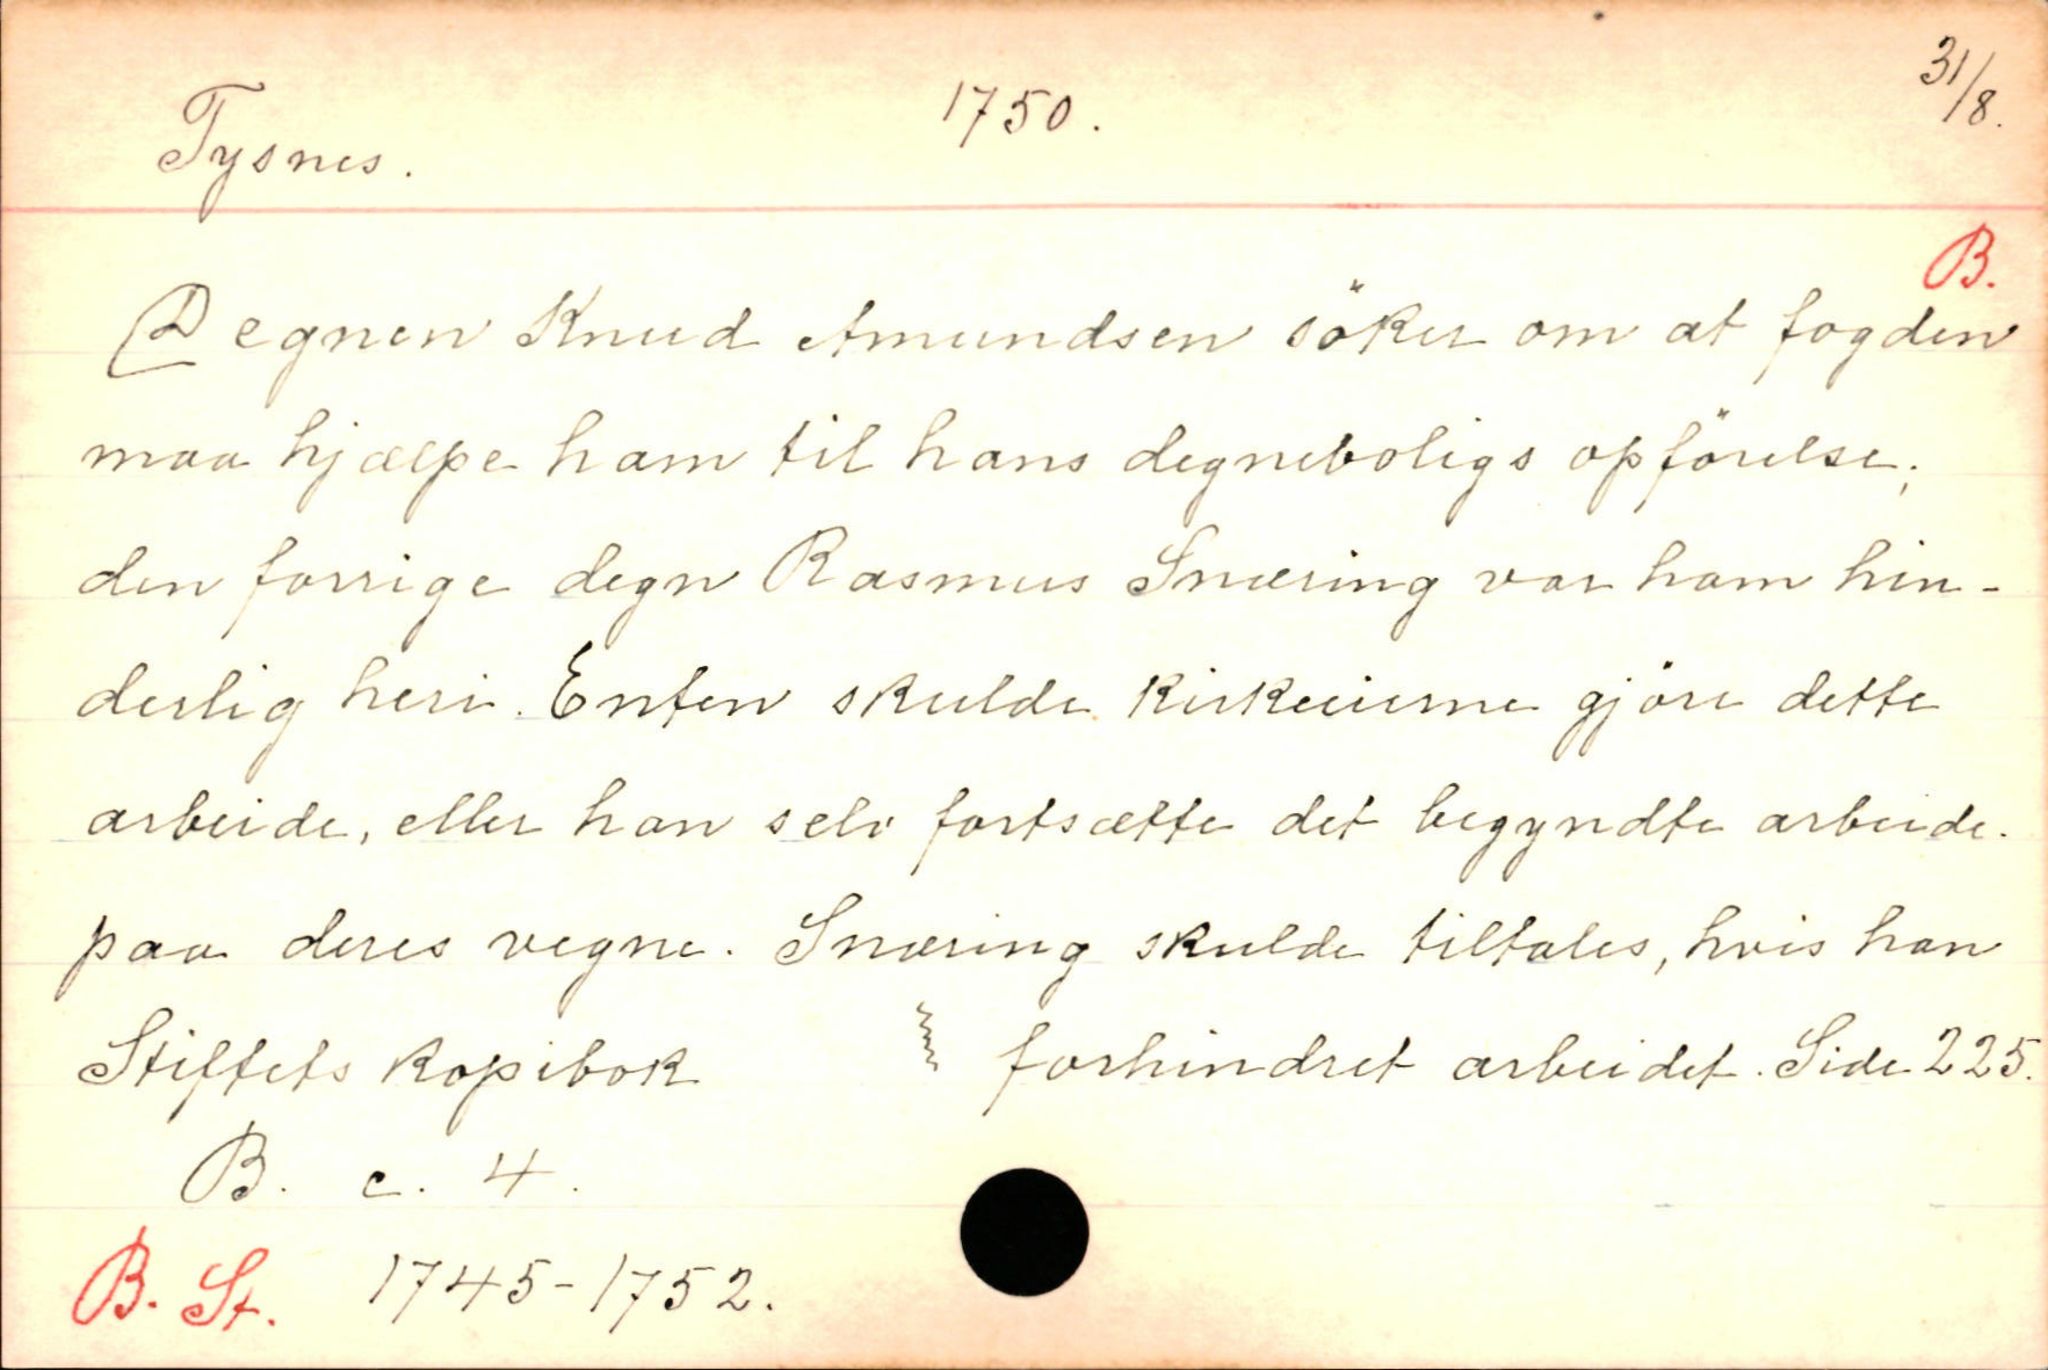 Tysnes. 1750. 31/8.
B.
Degnen Knud Amundsen söker om at fogden
maa hjælpe ham til hans degneboligs opförelse;
den forrige degn Rasmus Snæring var ham hin-
derlig heri. Enten skulde kirkeeierne gjöre dette
arbeide, eller han selv fortsætte det begyndte arbeide
paa deres vegne. Snæring skulde tiltales, hvis han
Stiftets kopibok forhindret arbeidet. Side 225.
B. c. 4.
B. St. 1745-1752.